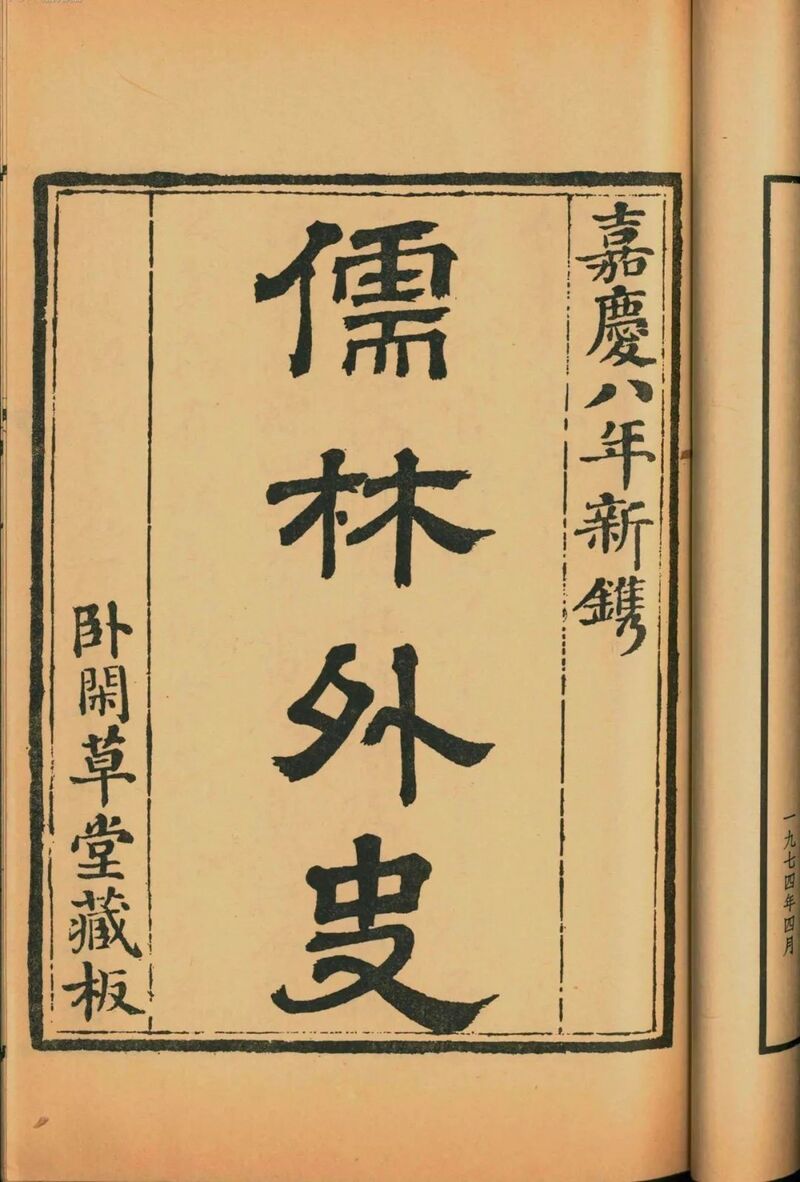 一九七四年四月
嘉慶八年新鐫
儒林外史
卧閑草堂藏板